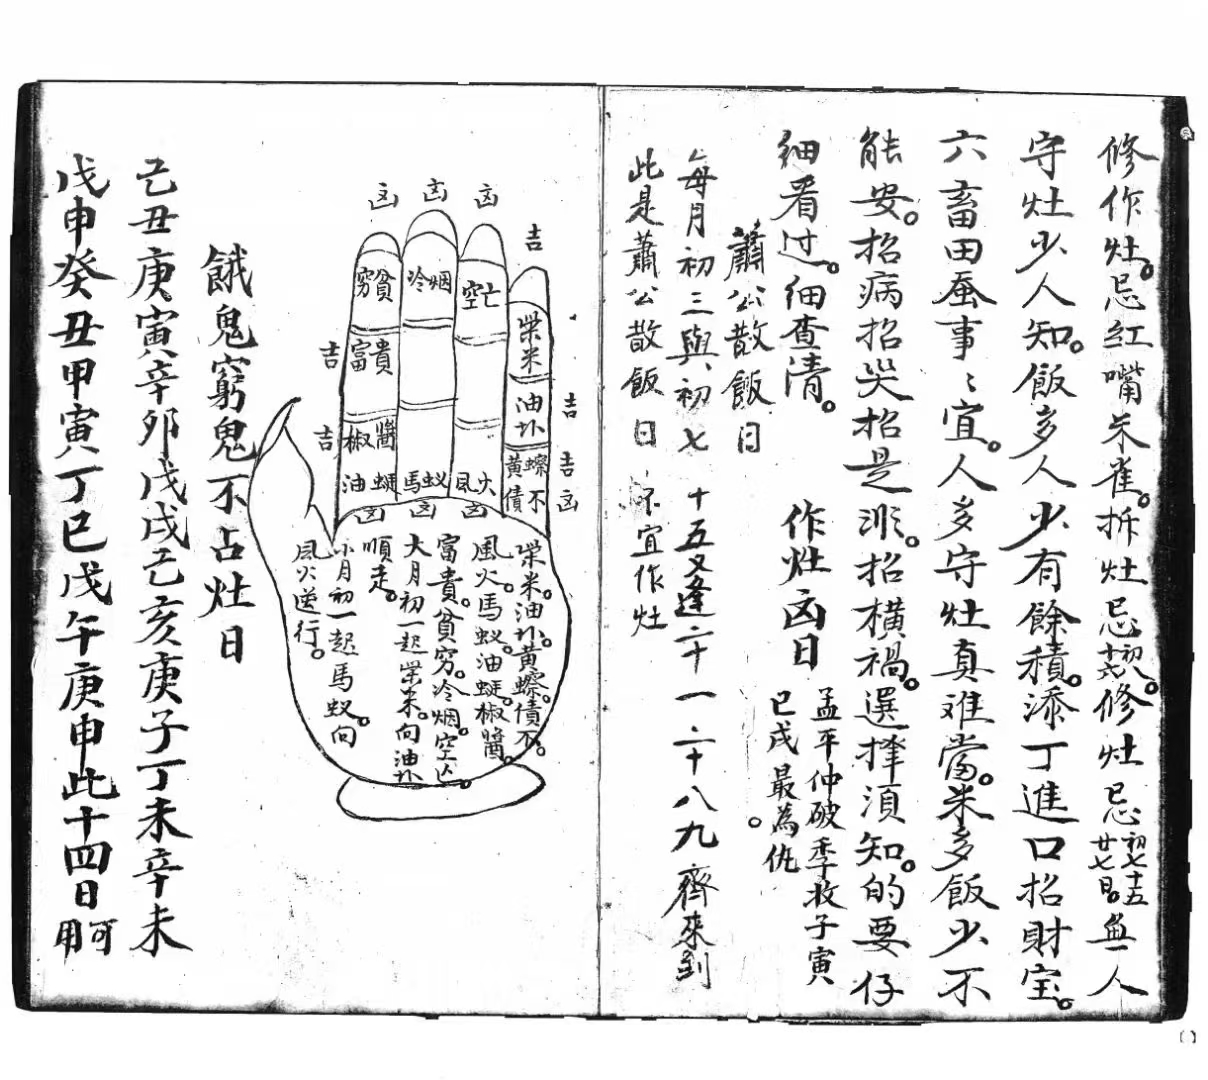 修作灶。忌红嘴朱雀。拆灶忌初八十六。修灶忌初七十五廿七日。無一人
守灶少人知。飯多人少有餘積。添丁進口招財宝。
六畜田蚕事〻宜。人多守灶真难當。米多飯少不
能安。招病招哭招是非。招横禍。選择須知。的要仔
细看过。细查清。
作灶凶日
孟平仲破季收子寅
已戌最為仇
蕭公散飯日
每月初三與初七
十五又逢二十一
二十八九齊來到
此是蕭公散飯日
不宜作灶
凶
凶
凶
吉
貧窮
冷烟
空亡
柴米
吉
富貴
油
吉
吉
椒醬
黄
債不
吉
凶
油蜓
馬蚁
風火
凶
凶
凶
柴米油
黄
債不。
風火。馬蚁。油蜓。椒醬。
富貴。貧穷。冷烟。空亡。
大月初一起柴米。向油
順走。
小月初一起馬蚁。向
風火逆行。
餓鬼窮鬼不占灶日
己丑庚寅辛卯戊戌己亥庚子丁未辛未
戊申癸丑甲寅丁巳戊午庚申此十四日可用